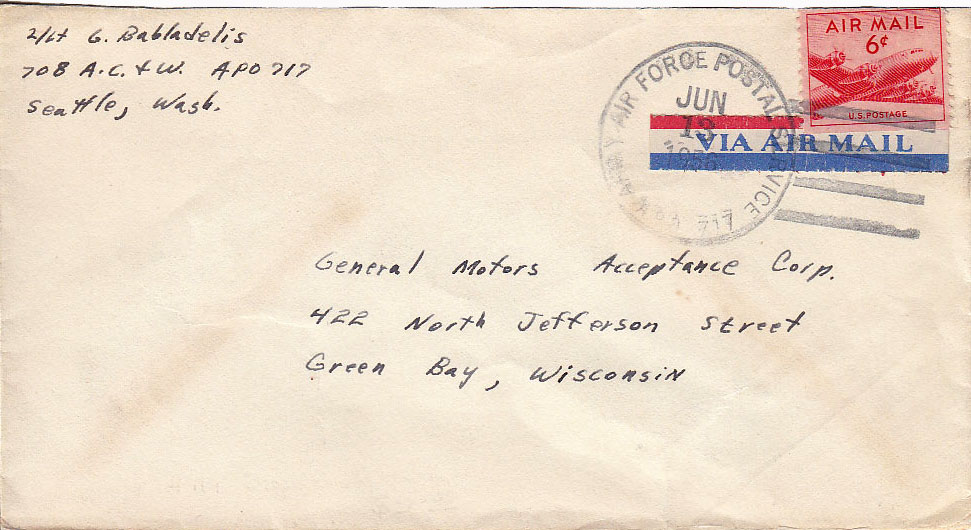 2/Lt G. Babladelis
708 A.C. & W. APO 717
Seattle, Wash.
AIR MAIL
6¢
U.S. POSTAGE
ARMY AIR FORCE POSTAL SERVICE
JUN
13
1956
717
VIA AIR MAIL
General Motors Acceptance Corp.
422 North Jefferson Street
Green Bay, Wisconsin